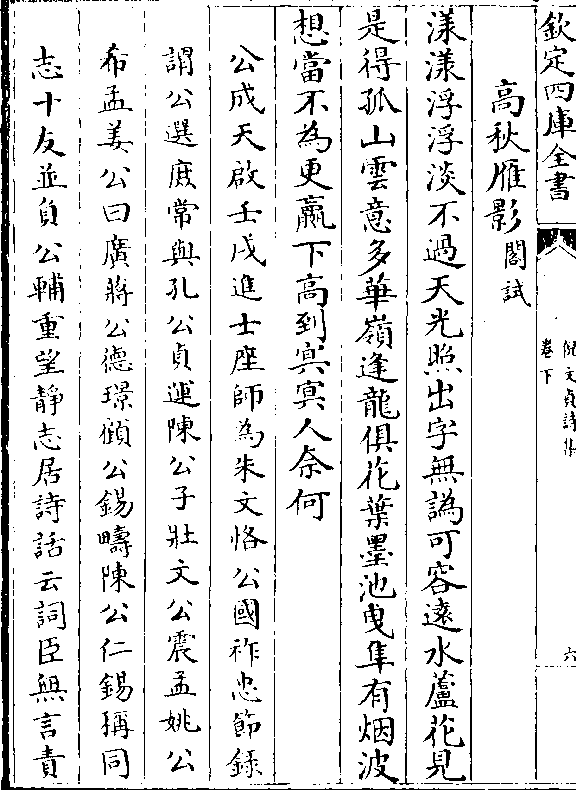 欽定四庫全書
倪文貞詩集
卷下
六
高秋雁影閣試
漾漾浮浮淡不過天光照出字無譌可容遠水蘆花見
是得孤山雲意多華嶺逢龍俱花葉墨池曳隼有烟波
想當不為更羸下高到冥冥人奈何
公成天啟壬戌進士座師為朱文恪公國祚忠節錄
謂公選庶常與孔公貞運陳公子壯文公震孟姚公
希孟姜公曰廣蔣公德璟顧公錫疇陳公仁錫稱同
志十友並負公輔重望靜志居詩話云詞臣無言責